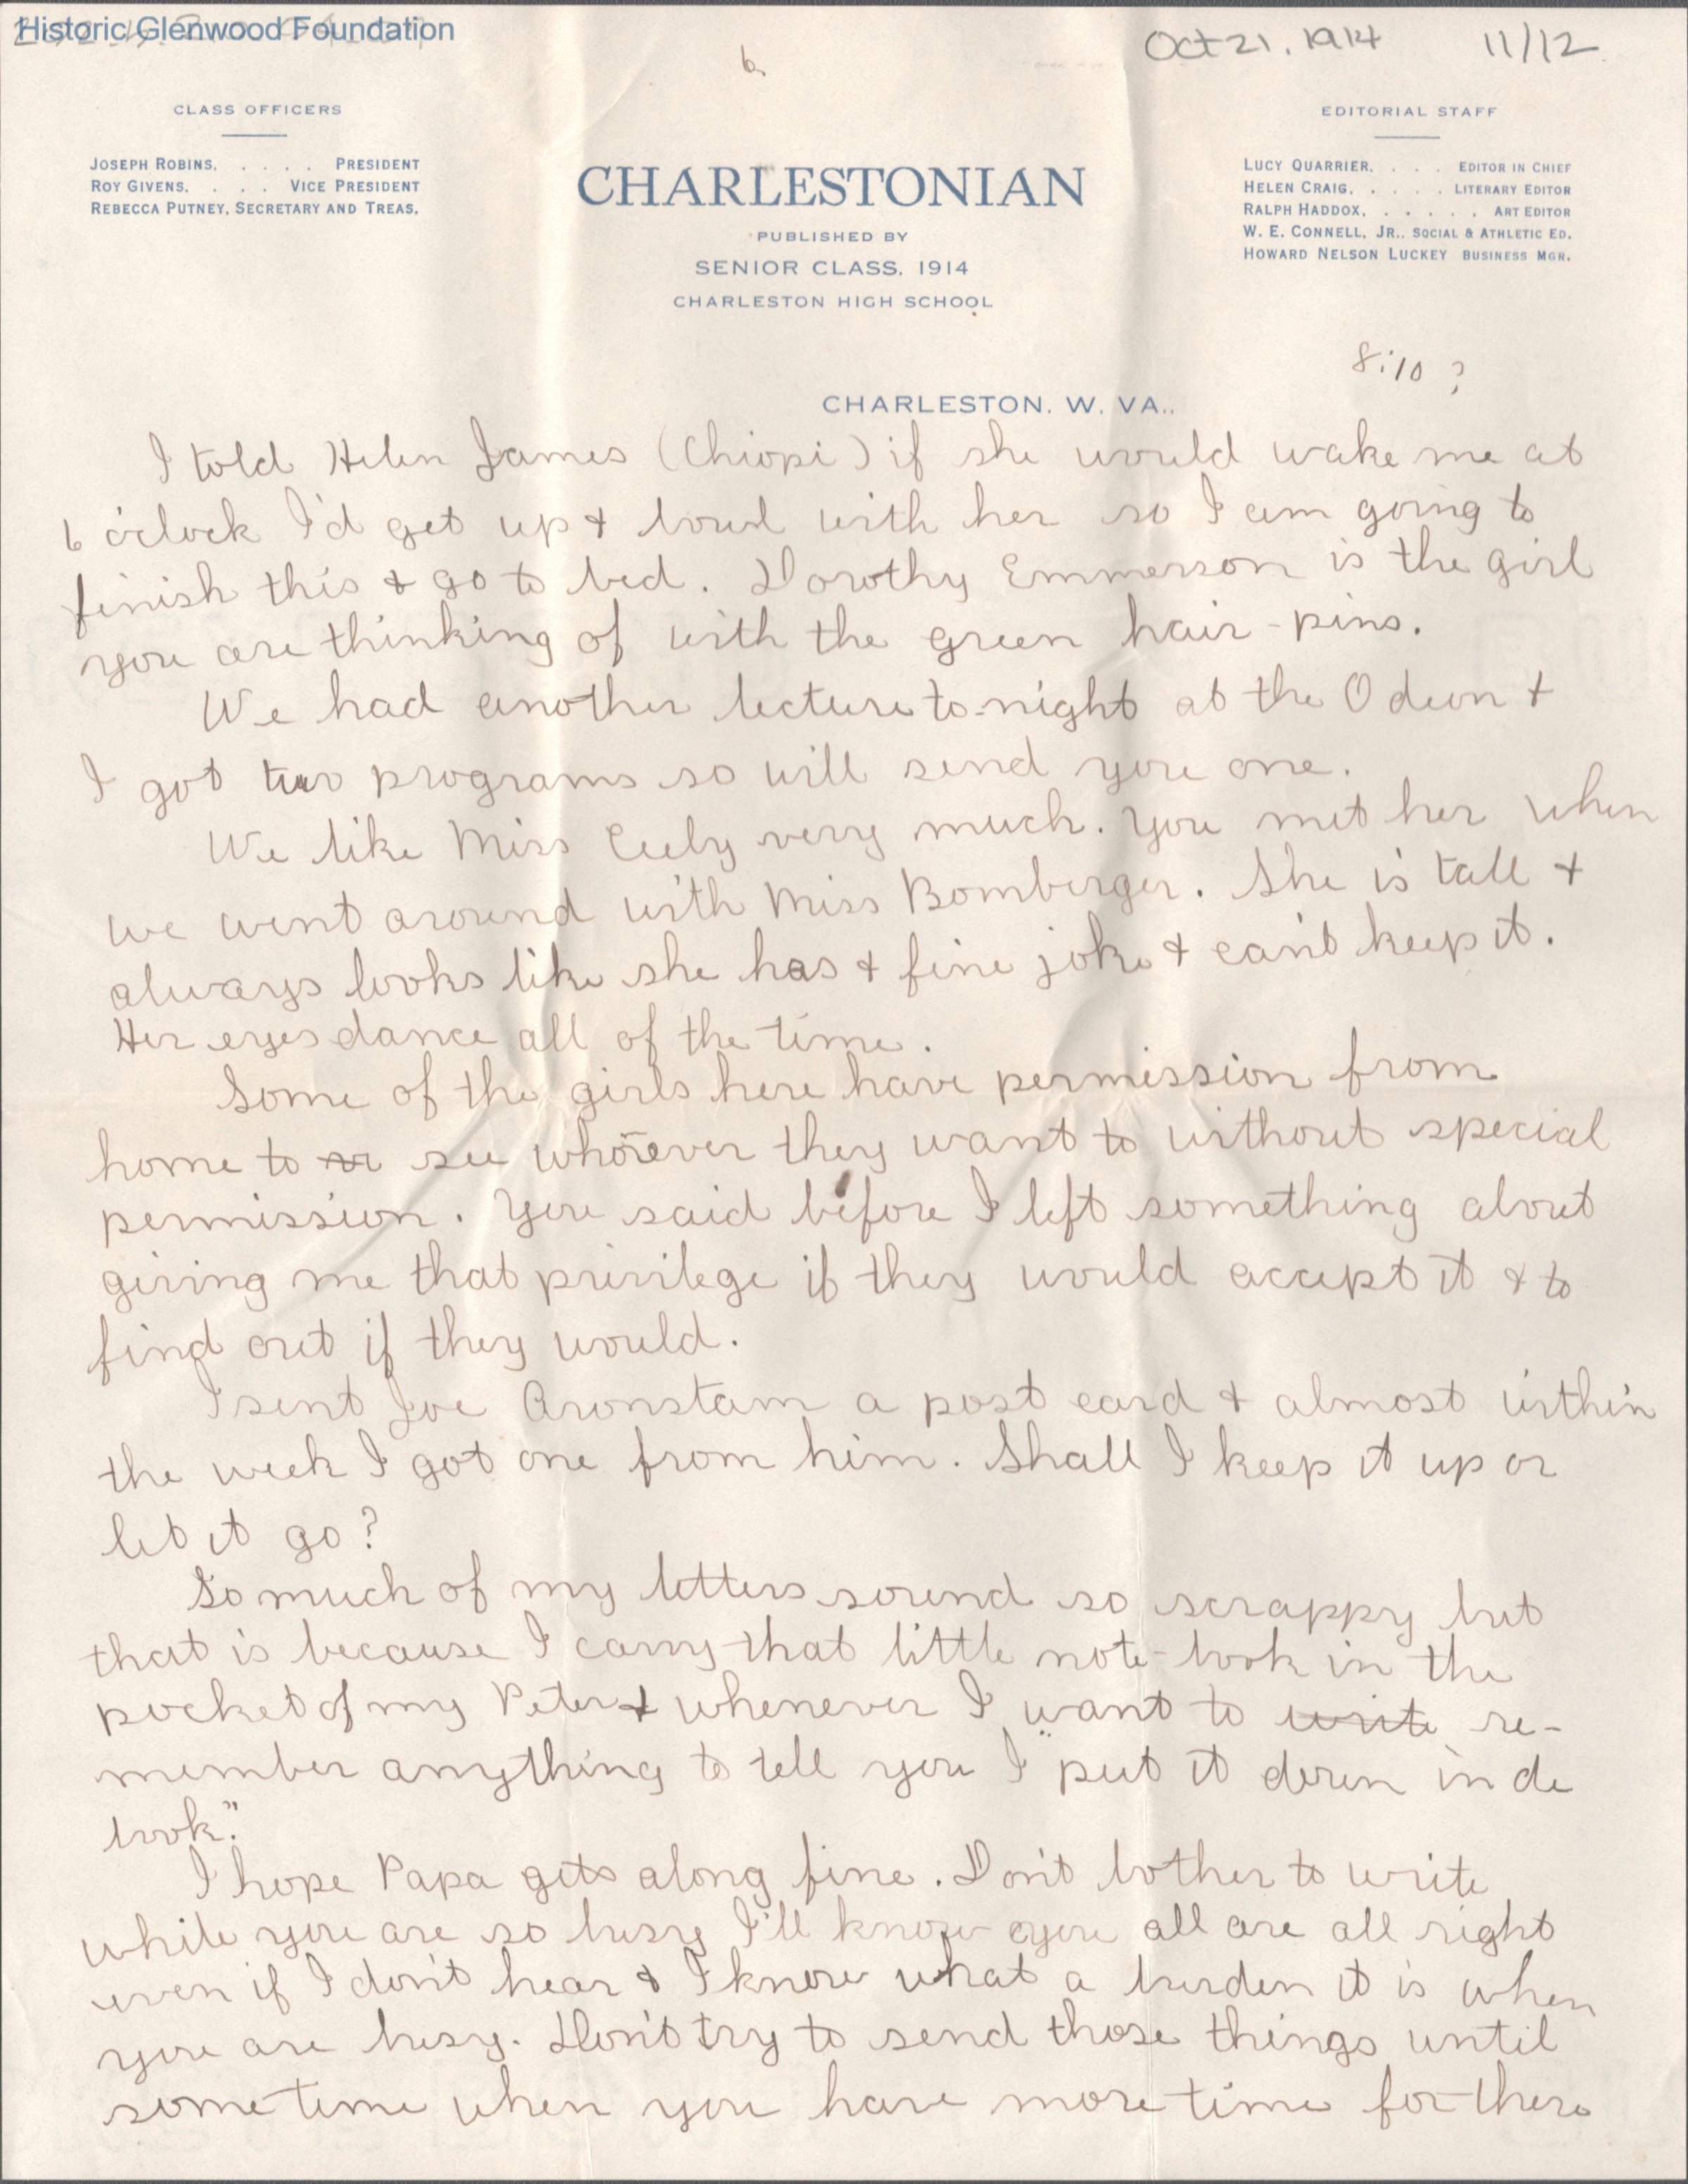 Historic Glenwood Foundation
Oct 21, 1914 11/12
6
CLASS OFFICERS
JOSEPH ROBINS, . . . . PRESIDENT
ROY GIVENS, . . . VICE PRESIDENT
REBECCA PUTNEY, SECRETARY AND TREAS.
CHARLESTONIAN
PUBLISHED BY
SENIOR CLASS, 1914
CHARLESTON HIGH SCHOOL
EDITORIAL STAFF
LUCY QUARRIER, . . . EDITOR IN CHIEF
HELEN CRAIG, . . . . LITERARY EDITOR
RALPH HADDOX, . . . . . ART EDITOR
W. E. CONNELL, JR., SOCIAL & ATHLETIC ED.
HOWARD NELSON LUCKEY BUSINESS MGR.
8:10 ?
CHARLESTON, W. VA.,
I told Helen James (Chiopi) if she would wake me at
6 o'clock I'd get up & bowl with her so I am going to
finish this & go to bed. Dorothy Emmerson is the girl
you are thinking of with the green hair-pins.
We had another lecture to-night at the Odeon &
I got two programs so will send you one.
We like Miss Ceely very much. You met her when
we went around with Miss Bomberger. She is tall &
always looks like she has & fine joke & can't keep it.
Her eyes dance all of the time.
Some of the girls here have permission from
home to see whoever they want to without special
permission. You said before I left something about
giving me that privilege if they would accept it & to
find out if they would.
I sent Joe Aronstam a post card & almost within
the week I got one from him. Shall I keep it up or
let it go?
So much of my letters sound so scrappy but
that is because I carry that little note-book in the
pocket of my Peter & whenever I want to write re-
member anything to tell you I "put it down in de
book."
I hope Papa gets along fine. Don't bother to write
while you are so busy I'll know you all are all right
even if I don't hear & I know what a burden it is when
you are busy. Don't try to send those things until
some time when you have more time for there